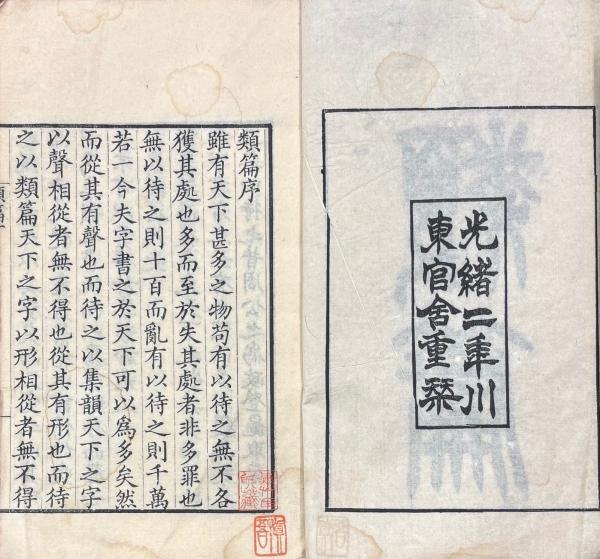 光緒二年川
東官舍重栞
類篇序
雖有天下甚多之物苟有以待之無不各
獲其處也多而至於失其處者非多罪也
無以待之則十百而亂有以待之則千萬
若一今夫字書之於天下可以為多矣然
而從其有聲也而待之以集韻天下之字
以聲相從者無不得也從其有形也而待
之以類篇天下之字以形相從者無不得